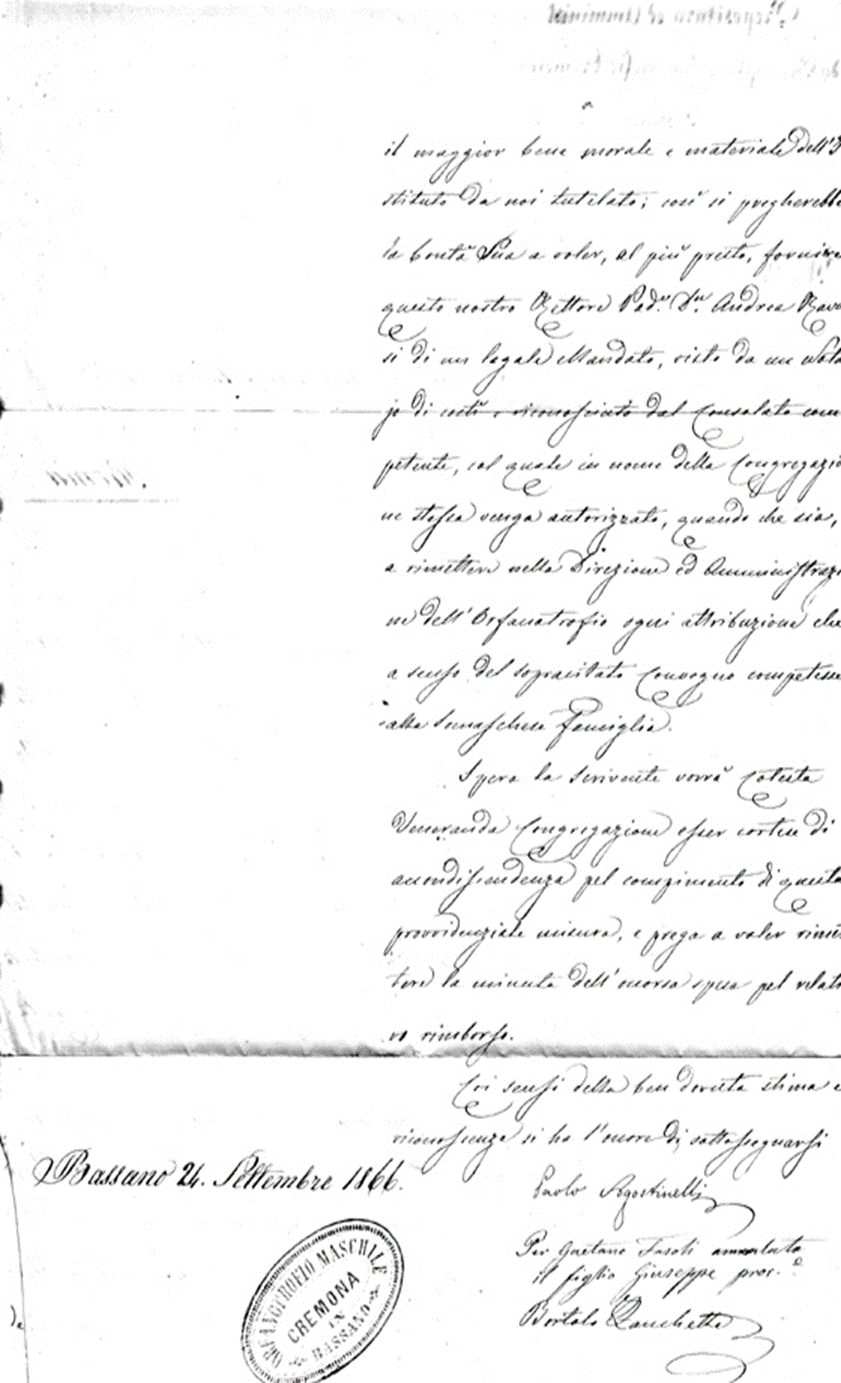 il maggior bene morale e materiale dell'I
stituto da noi tutelato; così si pregherebbe
la bontà Sua a voler, al più presto, fornire
questo nostro Rettore Pad.e D.n Andrea Rava
si di un legale Mandato, visto da un Nota
jo di costì e riconosciuto dal Consolato com
petente, col quale in nome della Congregazio
ne stessa venga autorizzato, quando che sia,
a rimettere nella Direzione ed Amministrazio
ne dell'Orfanatrofio ogni attribuzione che
a senso del sopracitato Convegno competesse
alla Somaschese Famiglia.
Spera la scrivente vorrà Cotesta
Veneranda Congregazione esser cortese di
accondiscendenza pel compimento di questa
provvidenziale misura, e prega a voler rimet
tere la minuta dell'incorsa spesa pel relati
vo rimborso.
Coi sensi della ben dovuta stima e
riconoscenza si ha l'onore di sottosegnarsi
Bassano 24. Settembre 1866.
Paolo Agostinelli
Per Gaetano Fasoli ammalato
il figlio Giuseppe proc.e
Bortolo Zanchetta
ORFANOTROFIO MASCHILE
CREMONA
IN
BASSANO